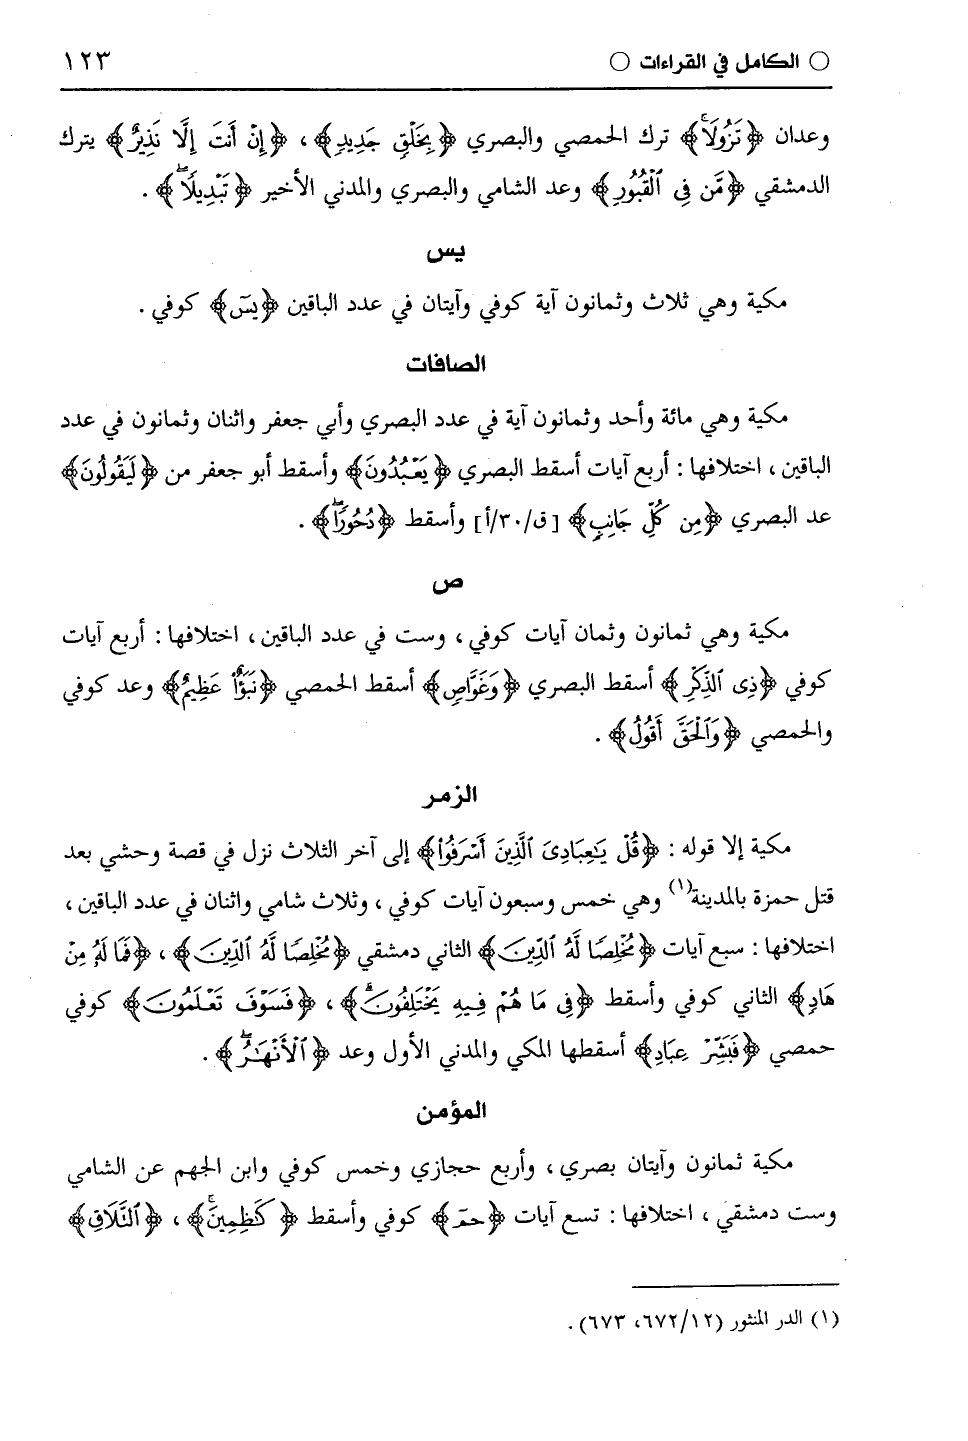 ○ الكامل في القراءات ○ ١٢٣
وعدان ﴿تَزُولَا﴾ ترك الحمصي والبصري ﴿بِخَلْقٍ جَدِيدٍ﴾ ، ﴿إِنْ أَنتَ إِلَّا نَذِيرٌ﴾ يترك
الدمشقي ﴿مَّن فِى ٱلْقُبُورِ﴾ وعد الشامي والبصري والمدني الأخير ﴿تَبْدِيلًا﴾ .
يس
مكية وهي ثلاث وثمانون آية كوفي وآيتان في عدد الباقين ﴿يسٓ﴾ كوفي .
الصافات
مكية وهي مائة وأحد وثمانون آية في عدد البصري وأبي جعفر واثنان وثمانون في عدد
الباقين ، اختلافها : أربع آيات أسقط البصري ﴿يَعْبُدُونَ﴾ وأسقط أبو جعفر من ﴿لَيَقُولُونَ﴾
عد البصري ﴿مِن كُلِّ جَانِبٍ﴾ [ق/٣٠/أ] وأسقط ﴿دُحُورًا﴾ .
ص
مكية وهي ثمانون وثمان آيات كوفي ، وست في عدد الباقين ، اختلافها : أربع آيات
كوفي ﴿ذِى ٱلذِّكْرِ﴾ أسقط البصري ﴿وَغَوَّاصٍ﴾ أسقط الحمصي ﴿نَبَؤٌا۟ عَظِيمٌ﴾ وعد كوفي
والحمصي ﴿وَٱلْحَقَّ أَقُولُ﴾ .
الزمر
مكية إلا قوله : ﴿قُلْ يَـٰعِبَادِىَ ٱلَّذِينَ أَسْرَفُوا۟﴾ إلى آخر الثلاث نزل في قصة وحشي بعد
قتل حمزة بالمدينة(١) وهي خمس وسبعون آيات كوفي ، وثلاث شامي واثنان في عدد الباقين ،
اختلافها : سبع آيات ﴿مُخْلِصًا لَّهُ ٱلدِّينَ﴾ الثاني دمشقي ﴿مُخْلِصًا لَّهُ ٱلدِّينَ﴾ ، ﴿فَمَا لَهُۥ مِنْ
هَادٍ﴾ الثاني كوفي وأسقط ﴿فِى مَا هُمْ فِيهِ يَخْتَلِفُونَ﴾ ، ﴿فَسَوْفَ تَعْلَمُونَ﴾ كوفي
حمصي ﴿فَبَشِّرْ عِبَادِ﴾ أسقطها المكي والمدني الأول وعد ﴿ٱلْأَنْهَـٰرُ﴾ .
المؤمن
مكية ثمانون وآيتان بصري ، وأربع حجازي وخمس كوفي وابن الجهم عن الشامي
وست دمشقي ، اختلافها : تسع آيات ﴿حمٓ﴾ كوفي وأسقط ﴿كَـٰظِمِينَ﴾ ، ﴿ٱلتَّلَاقِ﴾
(١) الدر المنثور (٦٧٢/١٢، ٦٧٣) .